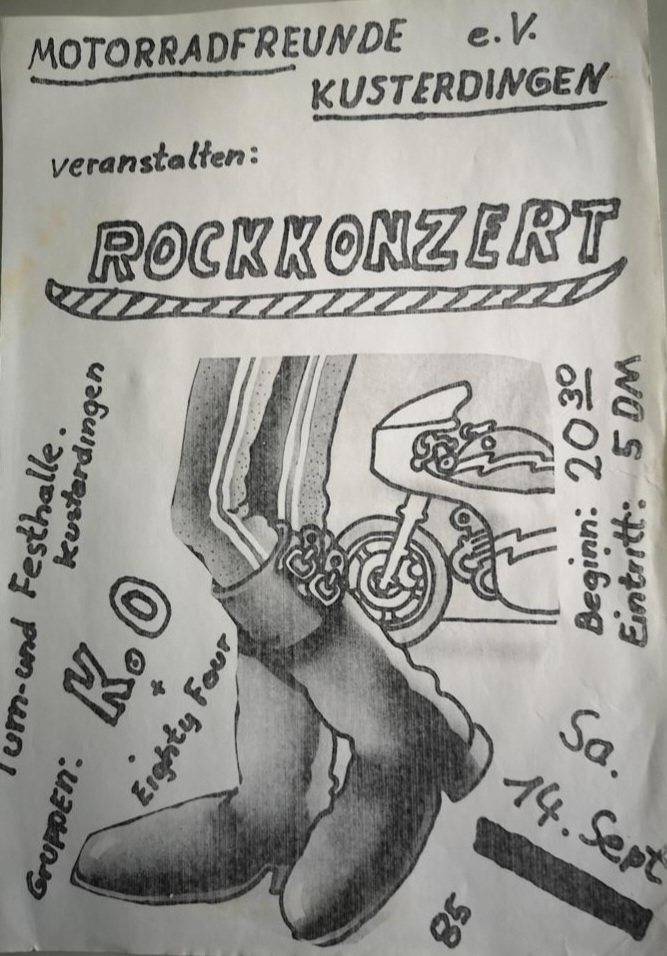 MOTORRADFREUNDE e.V.
KUSTERDINGEN
veranstalten:
ROCKKONZERT
Turn-und Festhalle.
Kusterdingen
Gruppen:
K.O
+
Eighty Four
Beginn: 20 30
Eintritt: 5 DM
Sa.
14. Sept
85